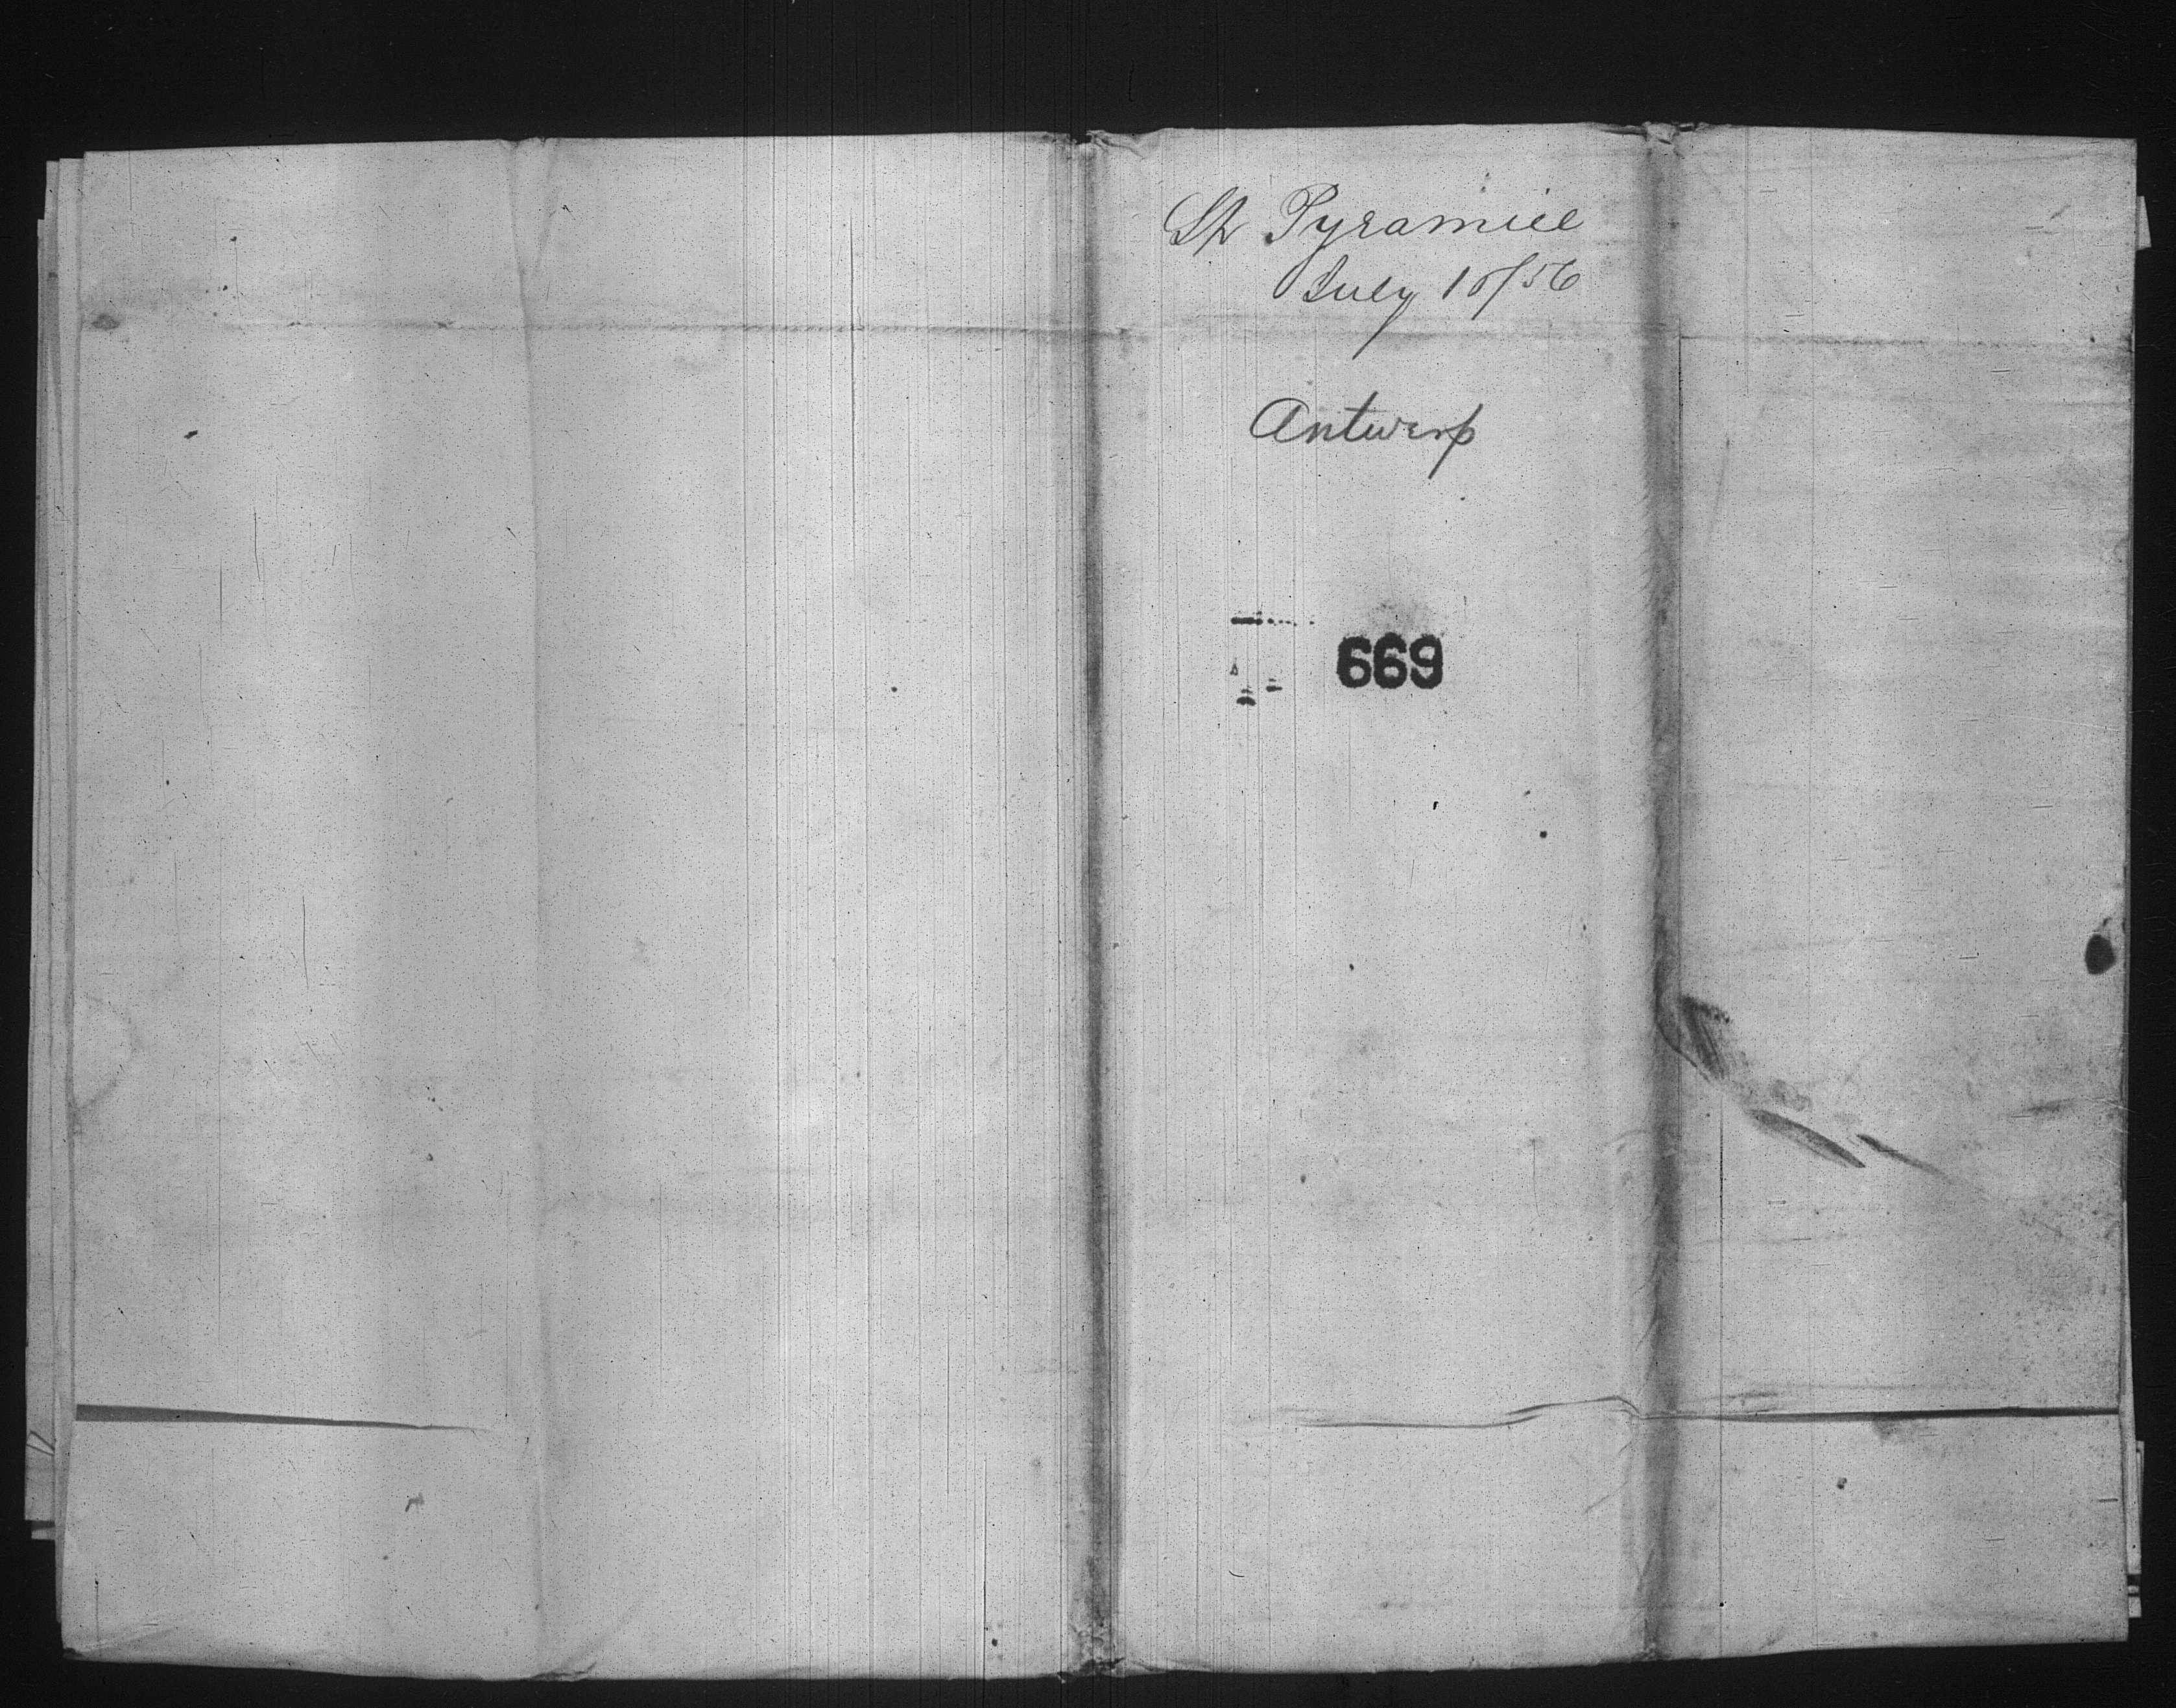 Sh Pyramid
July 10/56
Antwerp
669